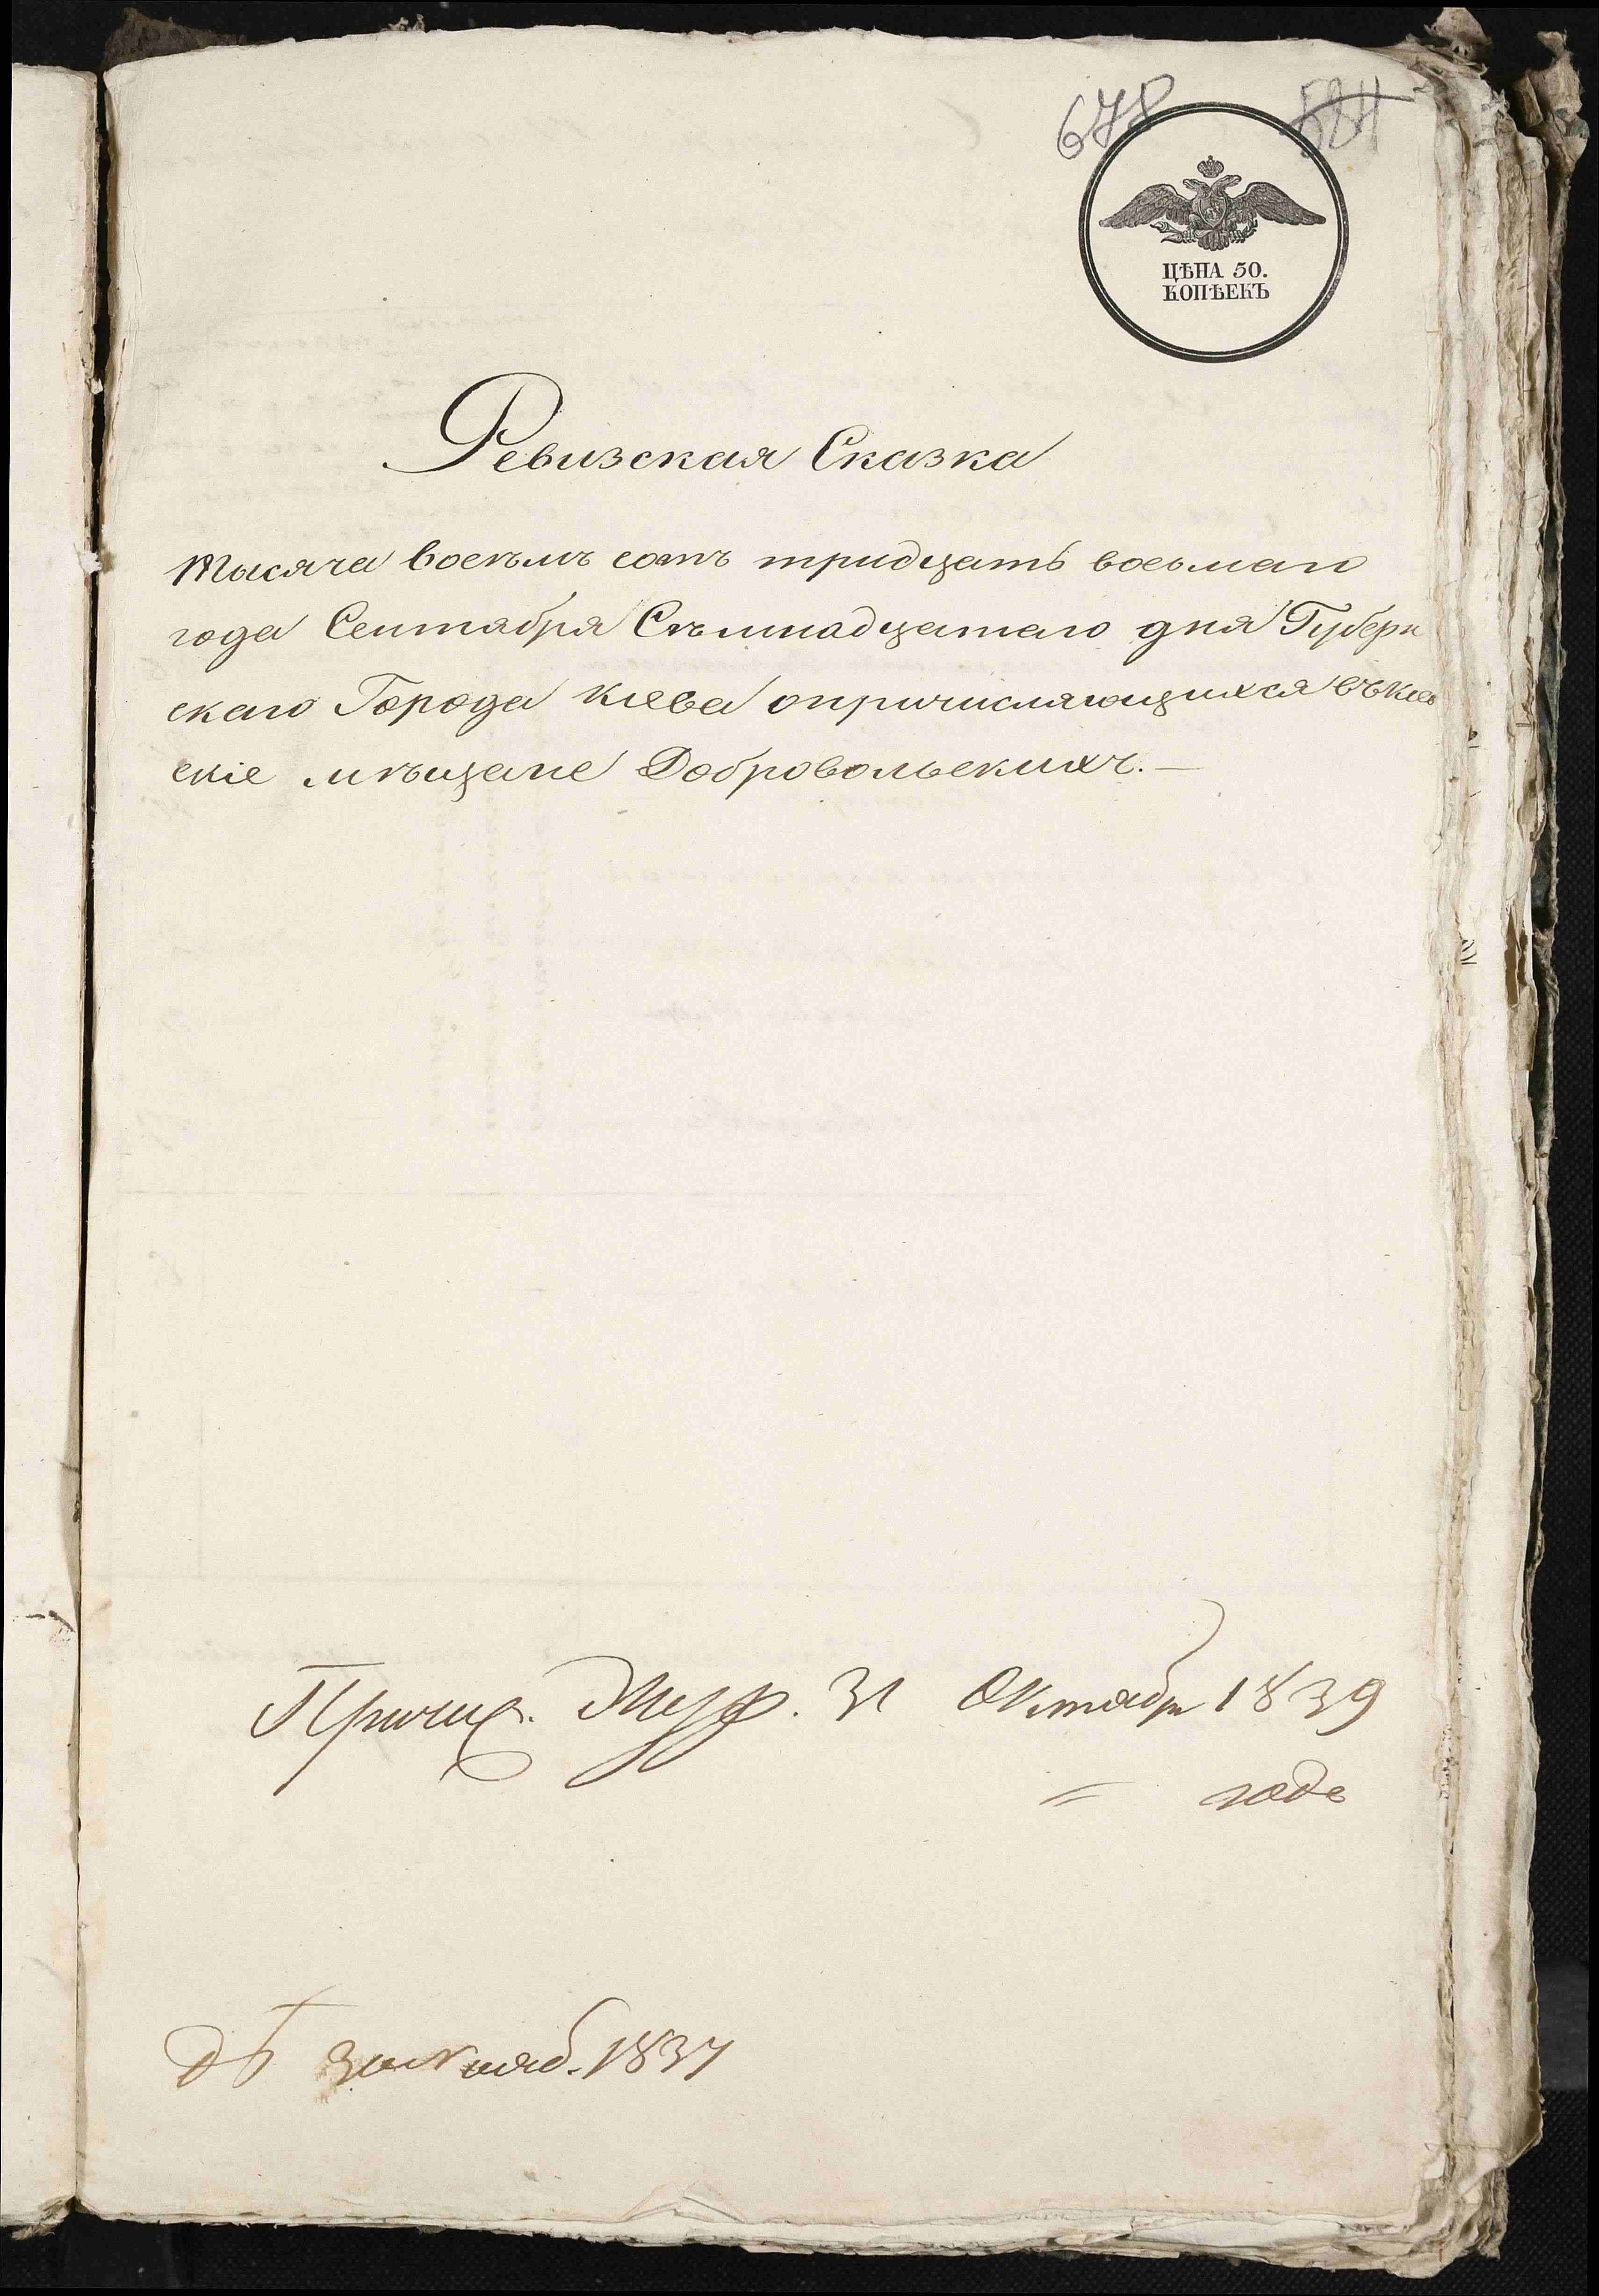 678 584
ЦѢНА 50.
КОПѢЕКЪ
Ревизская Сказка
Тысяча восемъ сотъ тридцать восьмаго
года Сентября Сѣмнадцатаго дня Губерн
скаго Города Киева опричисляющихся въ Киев
скіе мѣщане Добровольскихъ.—
Причис. Жур. 31 Октября 1839
года
1837